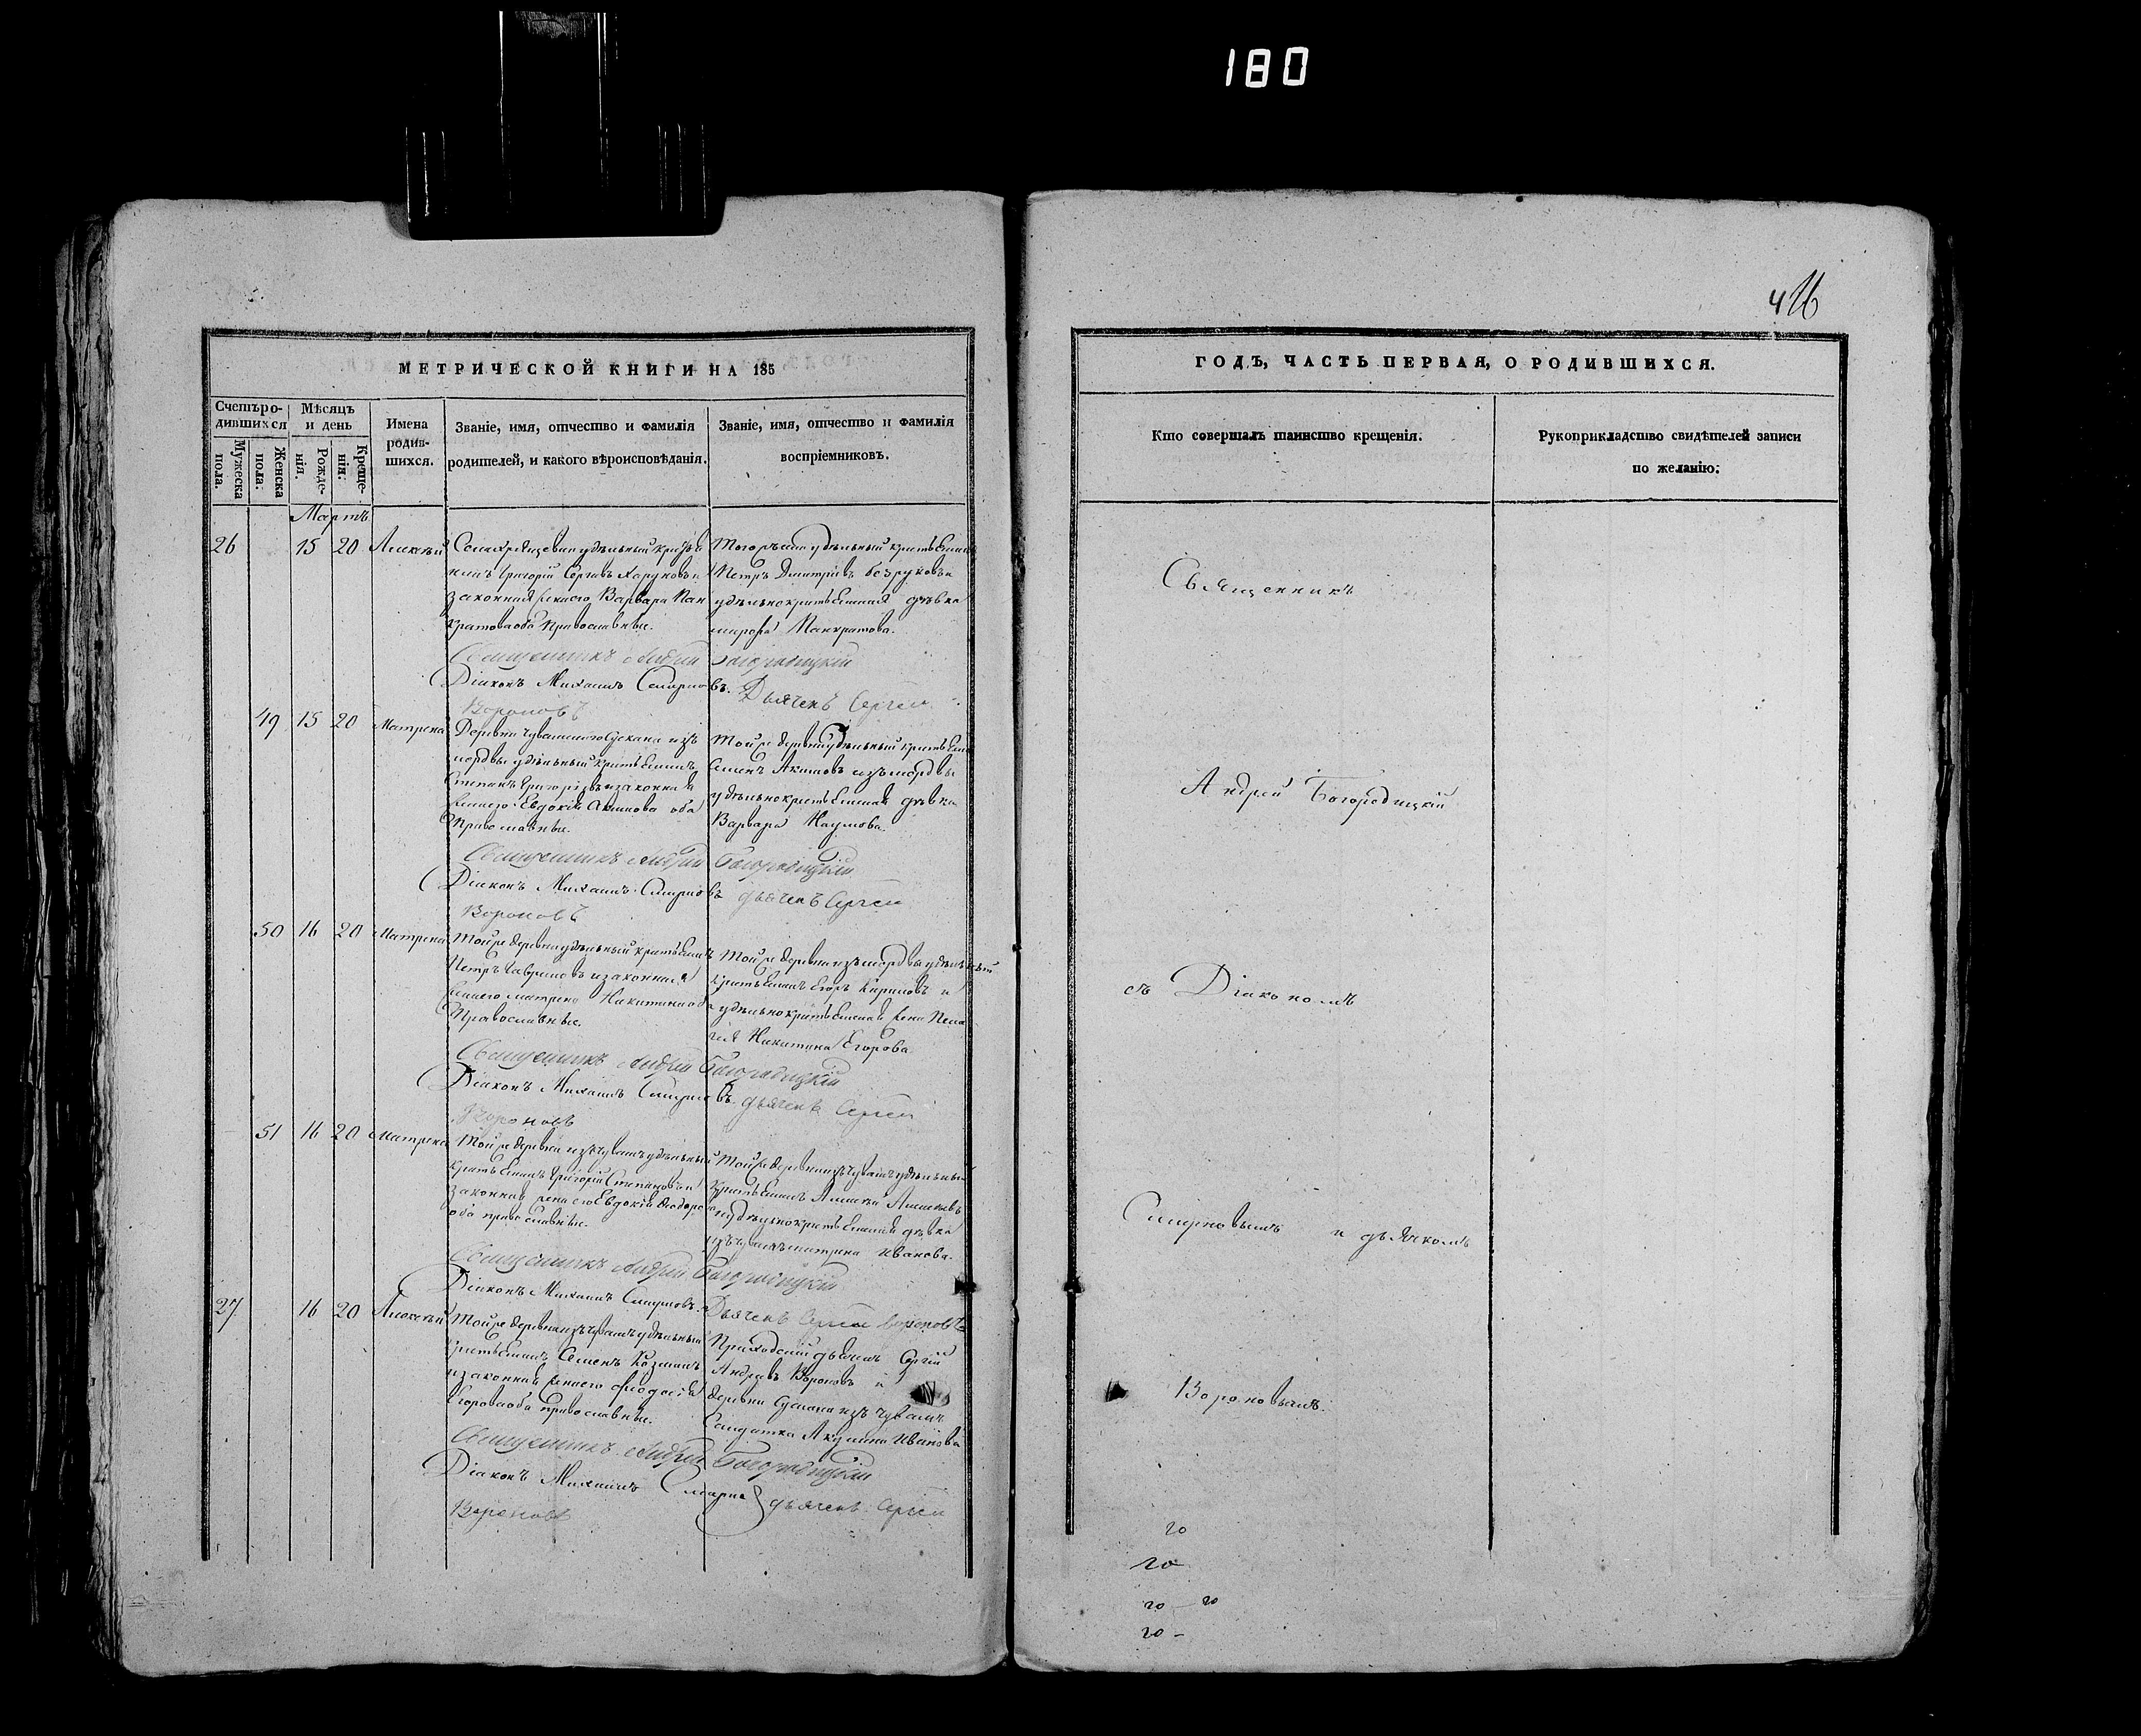 180
416
МЕТРИЧЕСКОЙ КНИГИ НА 185
Счетъ ро-
дившихся
Мужеска пола.
Женска пола.
Мѣсяцъ
и день
Рожде-
нія.
Креще-
нія.
Имена
родив-
шихся.
Званіе, имя, отчество и фамилія
родителей, и какого вѣроисповѣданія.
Званіе, имя, отчество и фамилія
воспріемниковъ.
Мартъ
26 15 20 Алексѣй
удѣльный
Григорій Сергѣевъ
законная жена его Варвара Пан
кратова оба православные.
удѣльный крестьянинъ
Петръ Дмитріевъ Безруковъ и
удѣльнокрестьянская дѣвка
Панкратова.
Священникъ Андрей Богородицкій
Діаконъ Михаилъ Смирновъ. Дьячекъ Сергей
Вороновъ
49 15 20 Матрена
Деревни изъ
мордвы удѣльный крестьянинъ
Степанъ Григорьевъ и законная
жена его Евдокія Акимова оба
православные.
Той же деревни удѣльный
Семенъ Акимовъ изъ мордвы
удѣльнокрестьянская дѣвка
Варвара Наумова.
Священникъ Андрей Богородицкій
Діаконъ Михаилъ Смирновъ дьячекъ Сергей
Вороновъ
50 16 20 Матрена
Той же деревни удѣльный крестьянинъ
Петръ Гавриловъ и законная
жена его Матрена Никитина оба
православные.
Той же деревни изъ мордвы удѣльный
крестьянинъ Егоръ Кириловъ и
удѣльнокрестьянская жена Пела
гея Никитина Егорова
Священникъ Андрей Богородицкій
Діаконъ Михаилъ Смирновъ. дьячекъ Сергей
Вороновъ
51 16 20 Матрена
Той же деревни изъ чувашъ удѣльный
крестьянинъ Григорій Степановъ и
законная жена его Евдокія
оба православные.
Той же деревни изъ чувашъ удѣльный
крестьянинъ Алексѣй
удѣльнокрестьянская дѣвка
изъ чувашъ Матрена Иванова.
Священникъ Андрей Богородицкій
Діаконъ Михаилъ Смирновъ. Дьячекъ Сергей Вороновъ
27 16 20 Алексѣй
Той же деревни изъ чувашъ удѣльный
крестьянинъ Семенъ Козминъ
и законная жена его Феодосія
Егорова оба православные.
Приходскій дьячекъ Сергій
Андреевъ Вороновъ и
деревни изъ чувашъ
Солдатка Акулина Иванова
Священникъ Андрей Богородицкій
Діаконъ Михаилъ Смирно дьячекъ Сергей
Вороновъ
ГОДЪ, ЧАСТЬ ПЕРВАЯ, О РОДИВШИХСЯ.
Кто совершалъ таинство крещенія.
Рукоприкладство свидѣтелей записи
по желанію.
Священникъ
Андрей Богородицкій
съ Діакономъ
Смирновымъ и дьячкомъ
Вороновымъ.
20
20
20 - 20
20 -